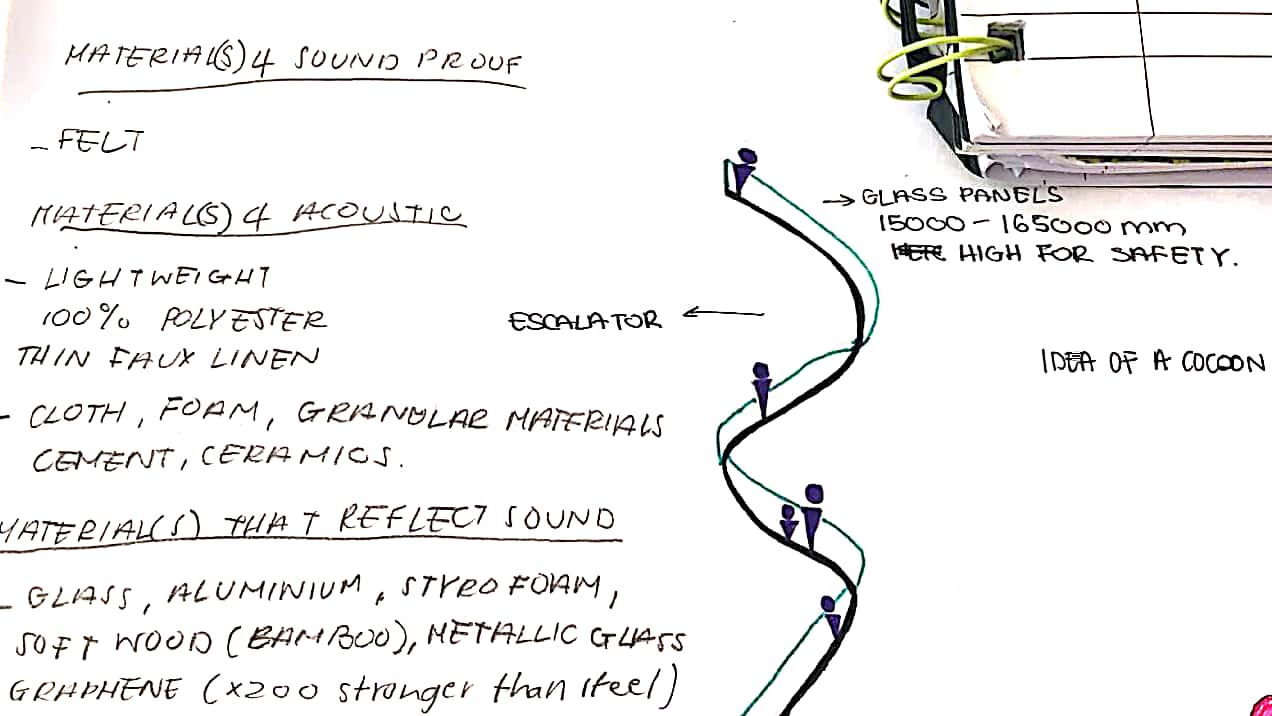 MATERIAL(S) 4 SOUND PROOF
- FELT
MATERIAL(S) 4 ACOUSTIC
- LIGHTWEIGHT
100% POLYESTER
THIN FAUX LINEN
- CLOTH, FOAM, GRANULAR MATERIALS
CEMENT, CERAMICS.
MATERIAL(S) THAT REFLECT SOUND
- GLASS, ALUMINIUM, STYROFOAM,
SOFT WOOD (BAMBOO), METALLIC GLASS
GRAPHENE (x200 stronger than steel)
→ GLASS PANELS
15000 - 165000 mm
HIGH FOR SAFETY.
ESCALATOR ←
IDEA OF A COCOON